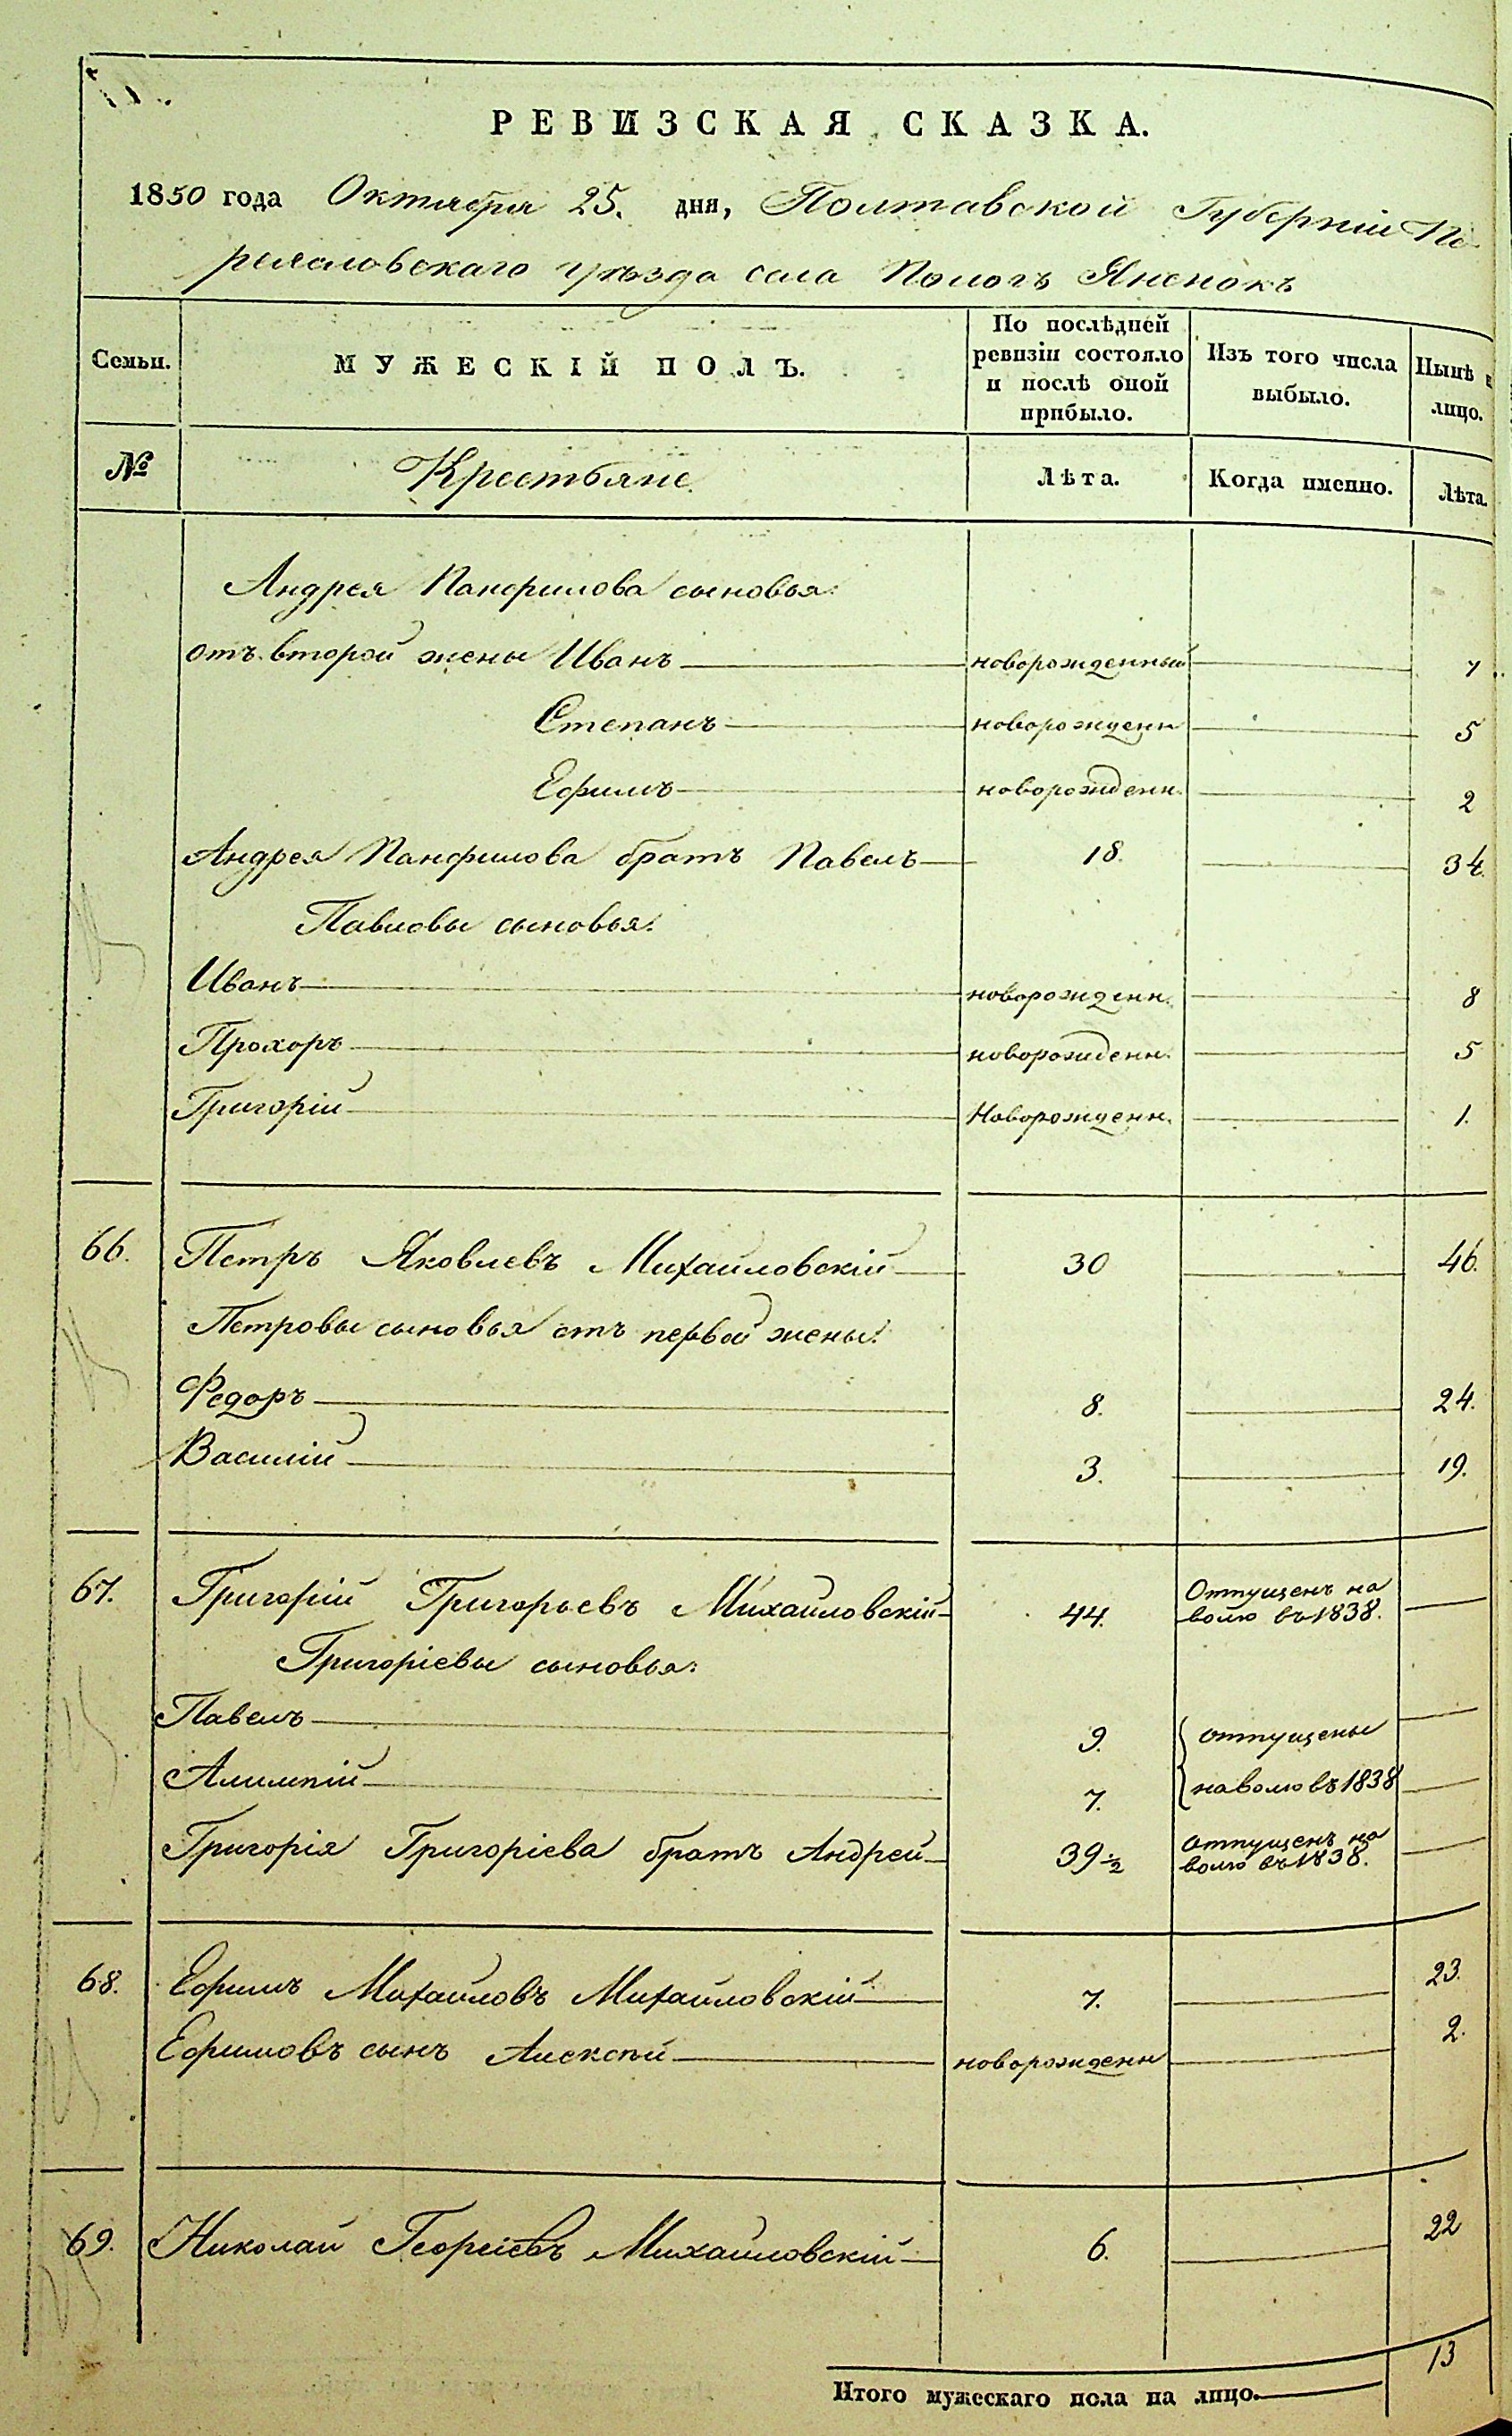 РЕВИЗСКАЯ СКАЗКА.
1850 года Октября 25. дня, Полтавской Губерніи Пе-
реяловскаго уѣзда села Пологъ Яненокъ
Семьи.
МУЖЕСКІЙ ПОЛЪ.
По послѣдней ревизіи состояло и послѣ оной прибыло.
Изъ того числа выбыло.
Нынѣ в лицо.
№ Крестьяне Лѣта. Когда именно. Лѣта.
Андрея Панфилова сыновья:
отъ второй жены Иванъ новорожденный 7
Степанъ новорожденн 5
Ефимъ новорожденн. 2
Андрея Панфилова братъ Павелъ 18. 34.
Павловы сыновья:
Иванъ новорожденн. 8
Прохоръ новорожденн. 5
Григорій Новорожденн. 1.
66. Петръ Яковлевъ Михайловскій 30 46.
Петровы сыновья отъ первой жены:
Федоръ 8. 24.
Василій 3. 19.
67. Григорій Григорьевъ Михайловскій 44. Отпущенъ на волю въ 1838.
Григоріевы сыновья:
Павелъ 9. отпущены
Алимпій 7. на волю въ 1838
Григорія Григоріева братъ Андрей 39½ отпущенъ на волю въ 1838.
68. Ефимъ Михайловъ Михайловскій 7. 23.
Ефимовъ сынъ Алексѣй новорожденн 2.
69. Николай Георгіевъ Михайловскій 6. 22
Итого мужескаго пола на лицо. 13